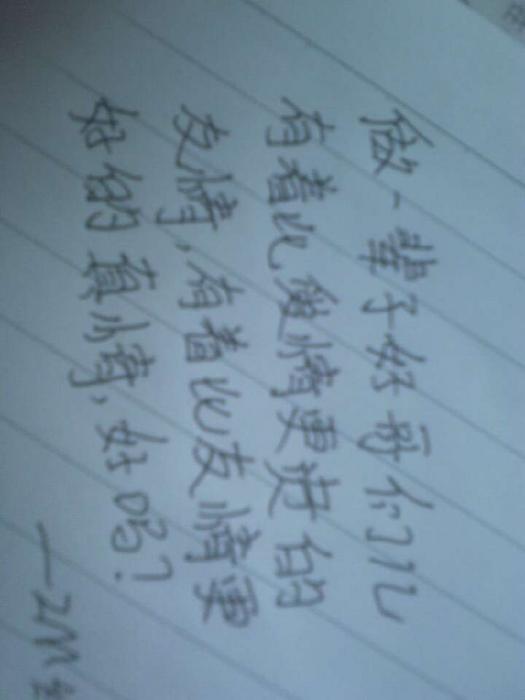 做一辈子好哥们儿
有着比爱情更进的
友情,有着比友情更
好的真情,好吗?
—ZM